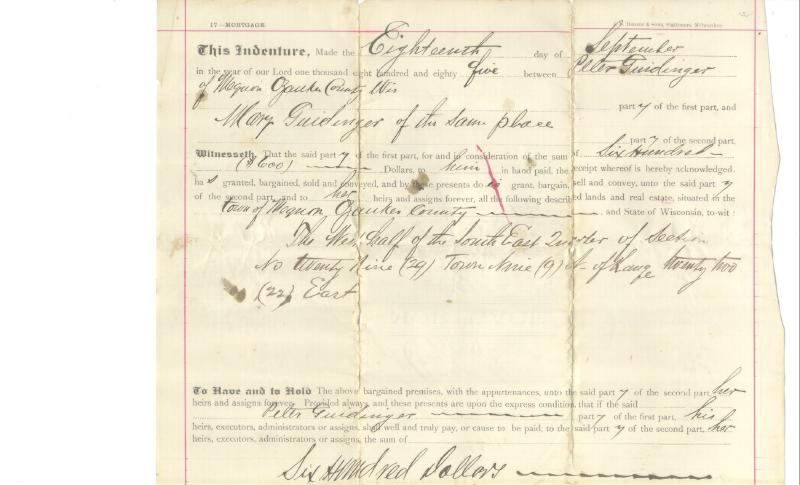 17—MORTGAGE.
This Indenture, Made the Eighteenth day of September
in the year of our Lord one thousand eight hundred and eighty five between Peter Guidinger
of Mequon Ozaukee County Wis
party of the first part, and
Mary Guidinger of the same place
party of the second part.
Witnesseth, That the said party of the first part, for and in consideration of the sum of Six Hundred
($600) Dollars, to him in hand paid, the receipt whereof is hereby acknowledged,
has granted, bargained, sold and conveyed, and by these presents do es grant, bargain, sell and convey, unto the said party
of the second part, and to her heirs and assigns forever, all the following described lands and real estate, situated in the
town of Mequon Ozaukee County and State of Wisconsin, to-wit:
The West half of the South East Quarter of Section
No twenty Nine (29) Town Nine (9) N- of Range twenty two
(22) East
To Have and to Hold The above bargained premises, with the appurtenances, unto the said party of the second part, her
heirs and assigns forever. Provided always, and these presents are upon the express condition, that if the said
Peter Guidinger party of the first part, his
heirs, executors, administrators or assigns, shall well and truly pay, or cause to be paid, to the said party of the second part, her
heirs, executors, administrators or assigns, the sum of
Six Hundred Dollars